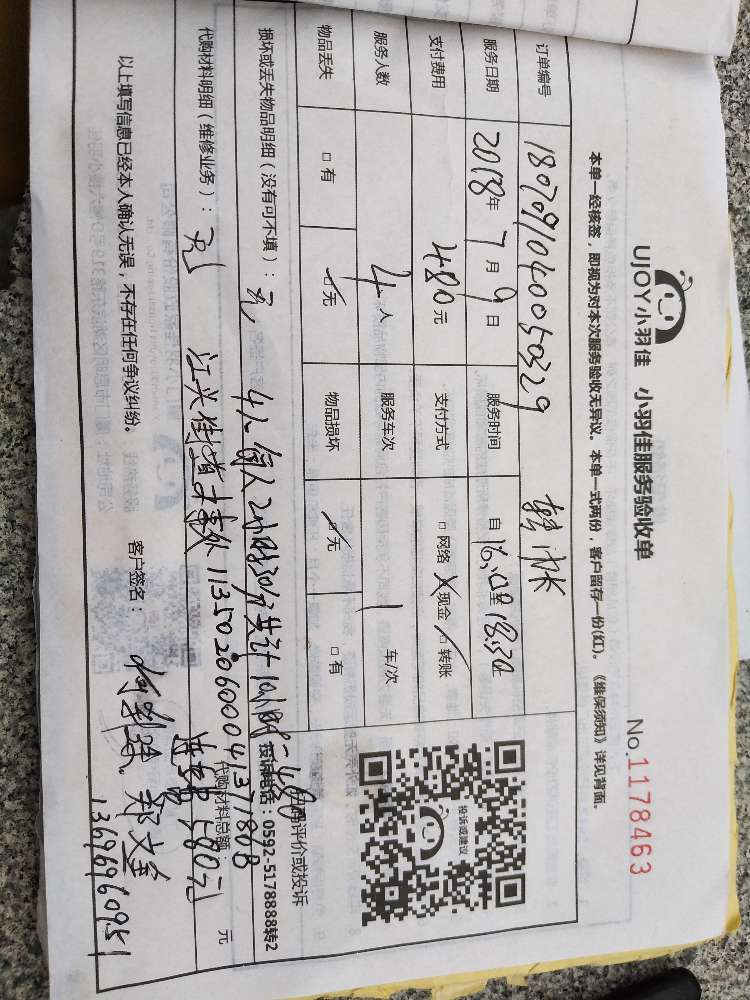 UJOY小羽佳 小羽佳服务验收单
No.1178463
本单一经核签，即视为对本次服务验收无异议。本单一式两份，客户留存一份(红)。《维保须知》详见背面。
订单编号 1807091040050329
服务日期 2018年7月9日 服务时间 自16:00至18:30
支付费用 480元 支付方式 □网络 现金 □转账
服务人数 4人 服务车次 1 车/次
物品丢失 □有 无 物品损坏 无 □有
投诉或建议
损坏或丢失物品明细（没有可不填）：无, 4人每人2小时30分共计10小时=480
评价或投诉
投诉电话：0592-5178888转2
代购材料明细（维修业务）：无 江兴街道办事处 11350206000413780B
代购材料总额： 元
580元
以上填写信息已经本人确认无误，不存在任何争议纠纷。 客户签名：
13696960951